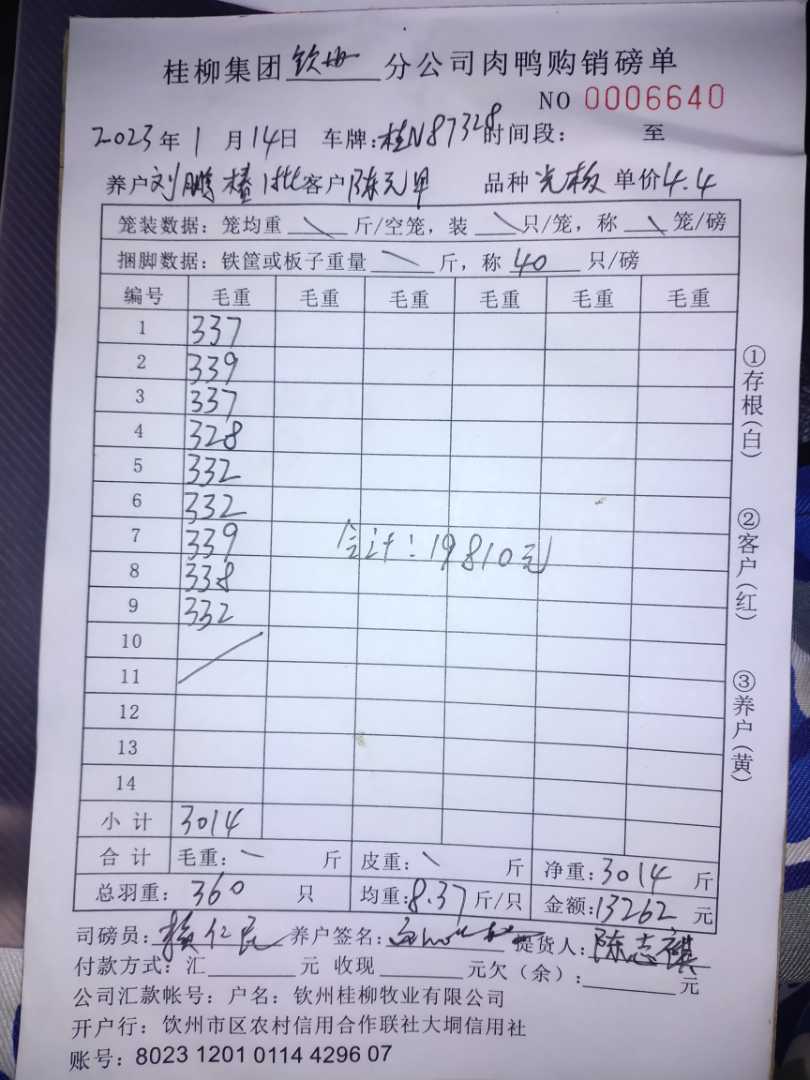 桂柳集团钦州分公司肉鸭购销磅单
NO 0006640
2023年1月14日 车牌:桂N87328时间段: 至
养户刘鹏椿1批客户陈元甲 品种光板 单价4.4
笼装数据：笼均重 \ 斤/空笼，装 \ 只/笼，称 \ 笼/磅
捆脚数据：铁筐或板子重量 \ 斤，称 40 只/磅
编号 毛重 毛重 毛重 毛重 毛重 毛重
1 337
2 339
3 337
4 328
5 332
6 332
7 339
合计：19810元
8 338
9 332
10
11
12
13
14
小计 3014
合计 毛重: \ 斤 皮重: \ 斤 净重:3014 斤
总羽重: 360 只 均重:8.37斤/只 金额:13262元
司磅员: 仁民 养户签名: 提货人:陈志祺
付款方式: 汇 元 收现 元欠（余）: 元
公司汇款帐号：户名：钦州桂柳牧业有限公司
开户行：饮州市区农村信用合作联社大垌信用社
账号：8023 1201 0114 4296 07
①存根(白)
②客户(红)
③养户(黄)